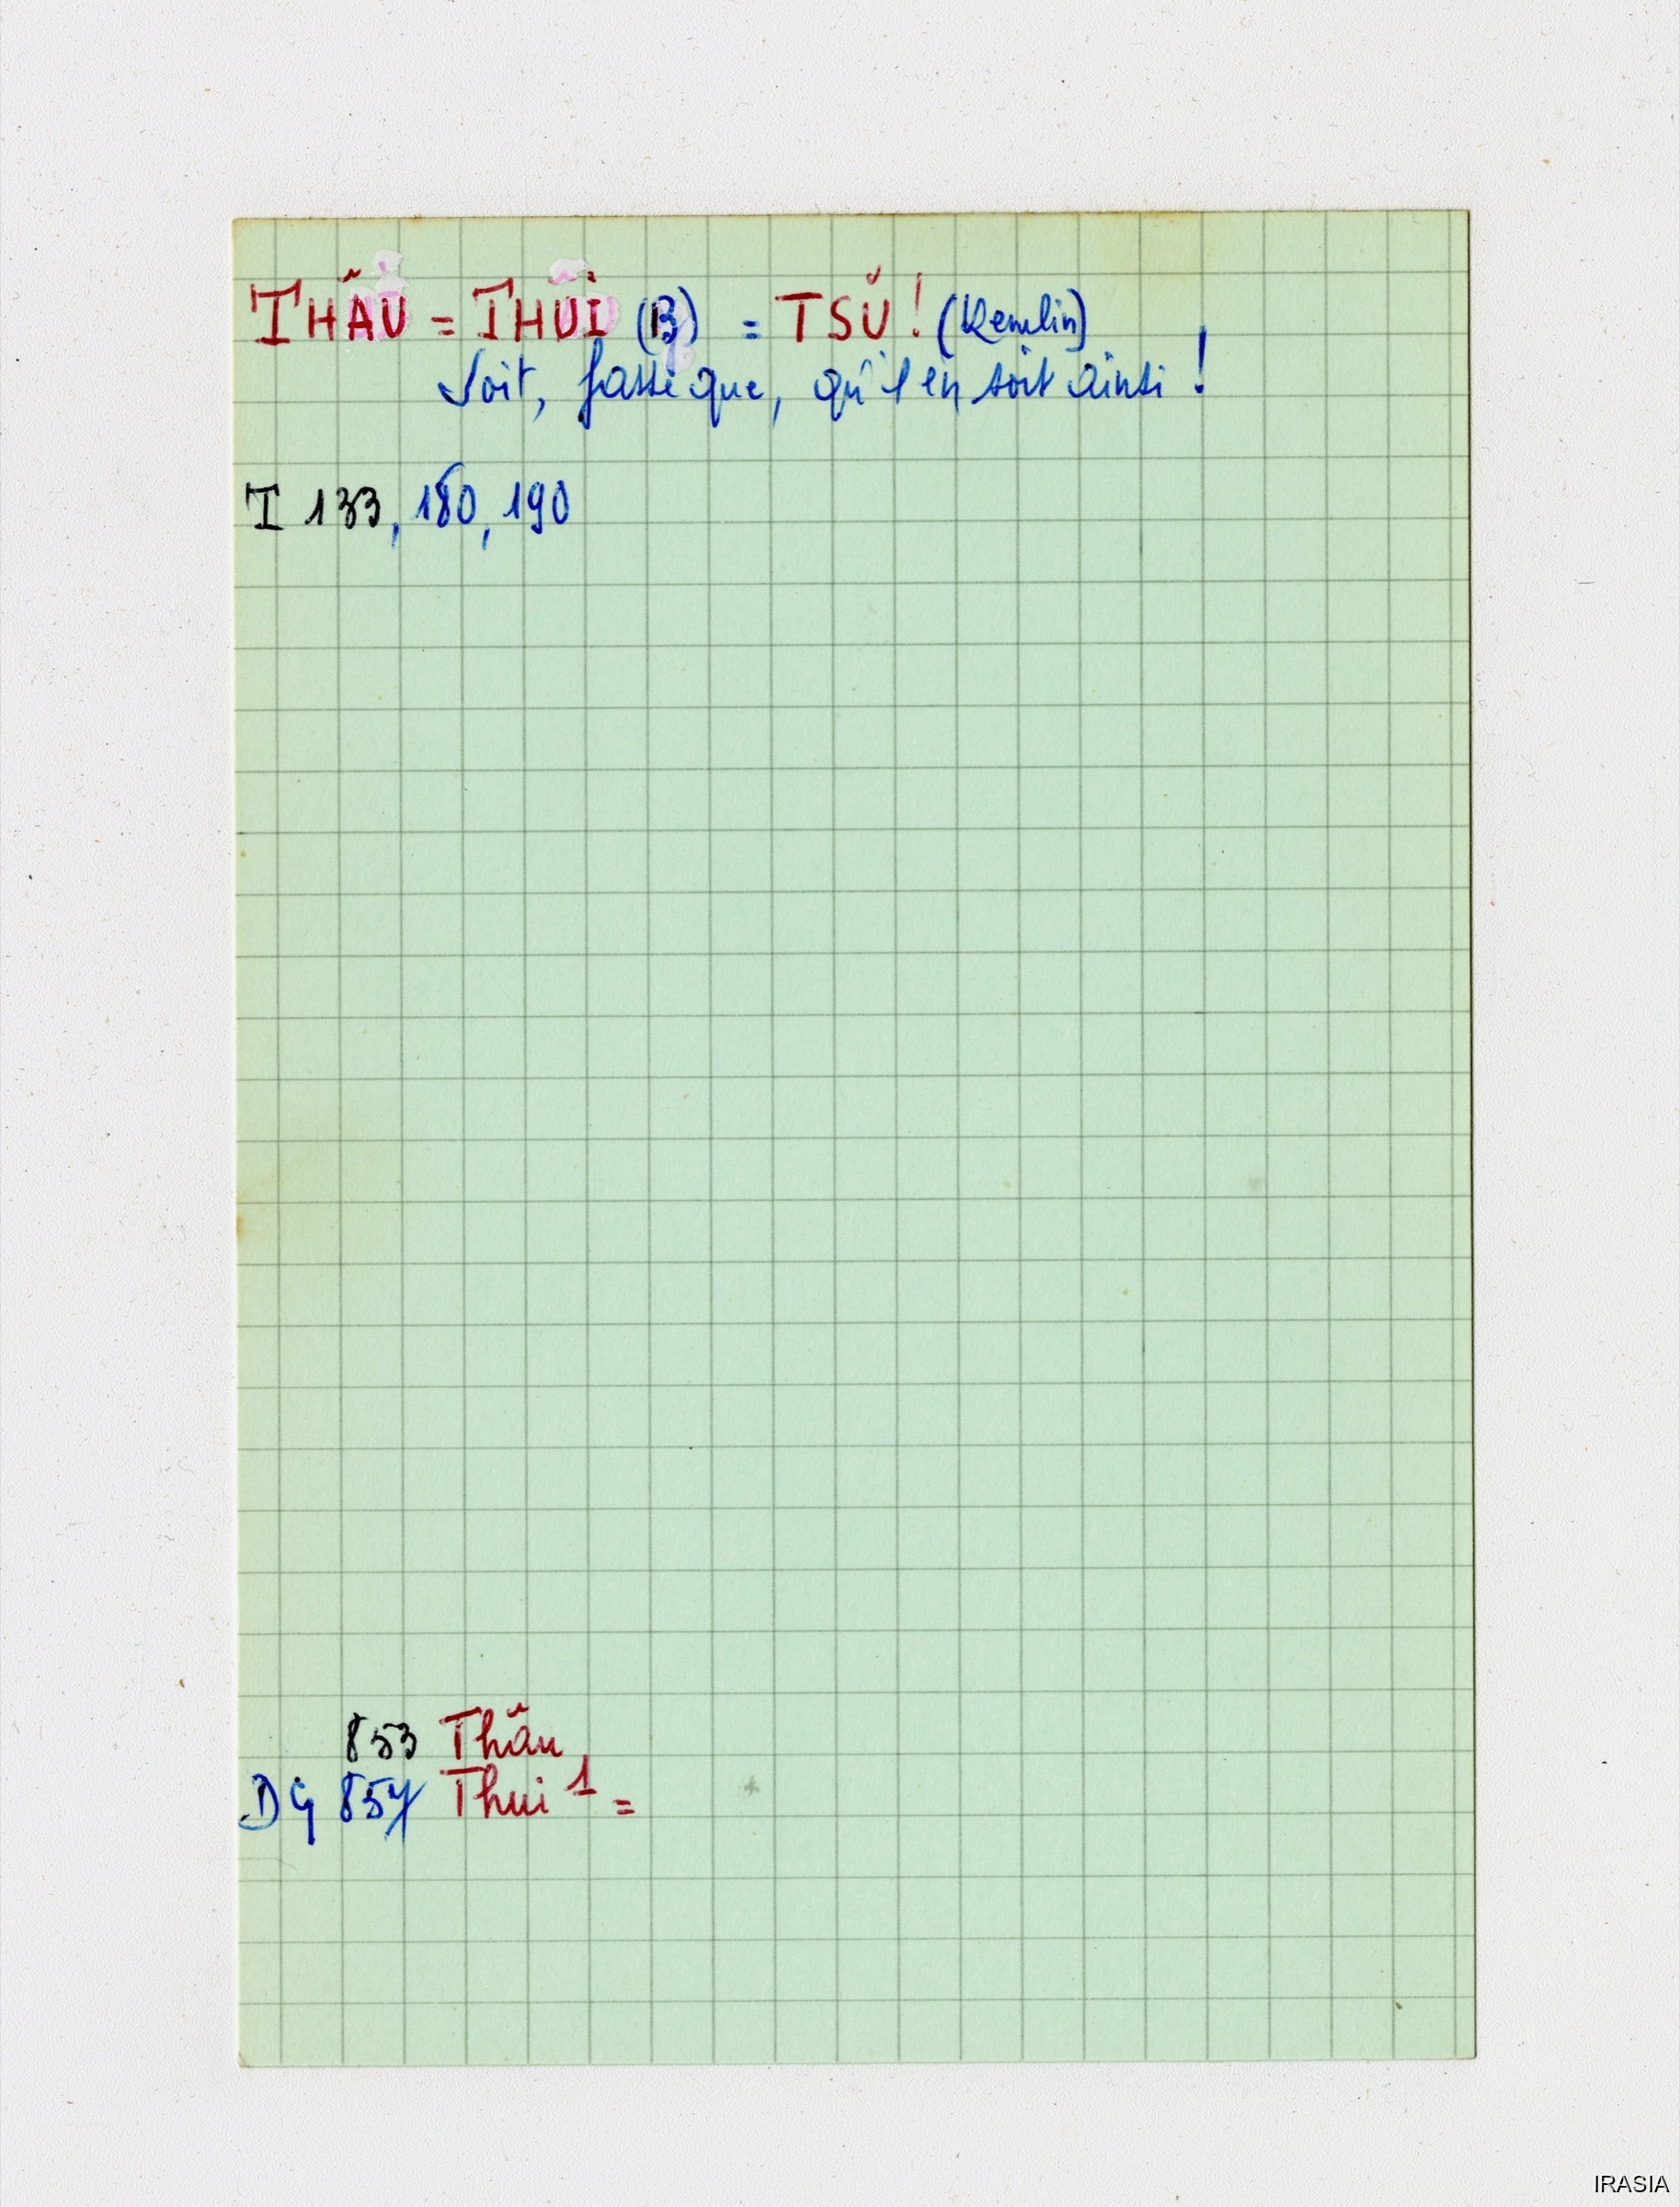 THÂ̆U = THŬI (B) = TSŬ! (Kemlin)
Soit, fasse que, qu'il en soit ainsi !
I 133, 180, 190
853 Thâ̆u
DG 854 Thui 1 =
IRASIA